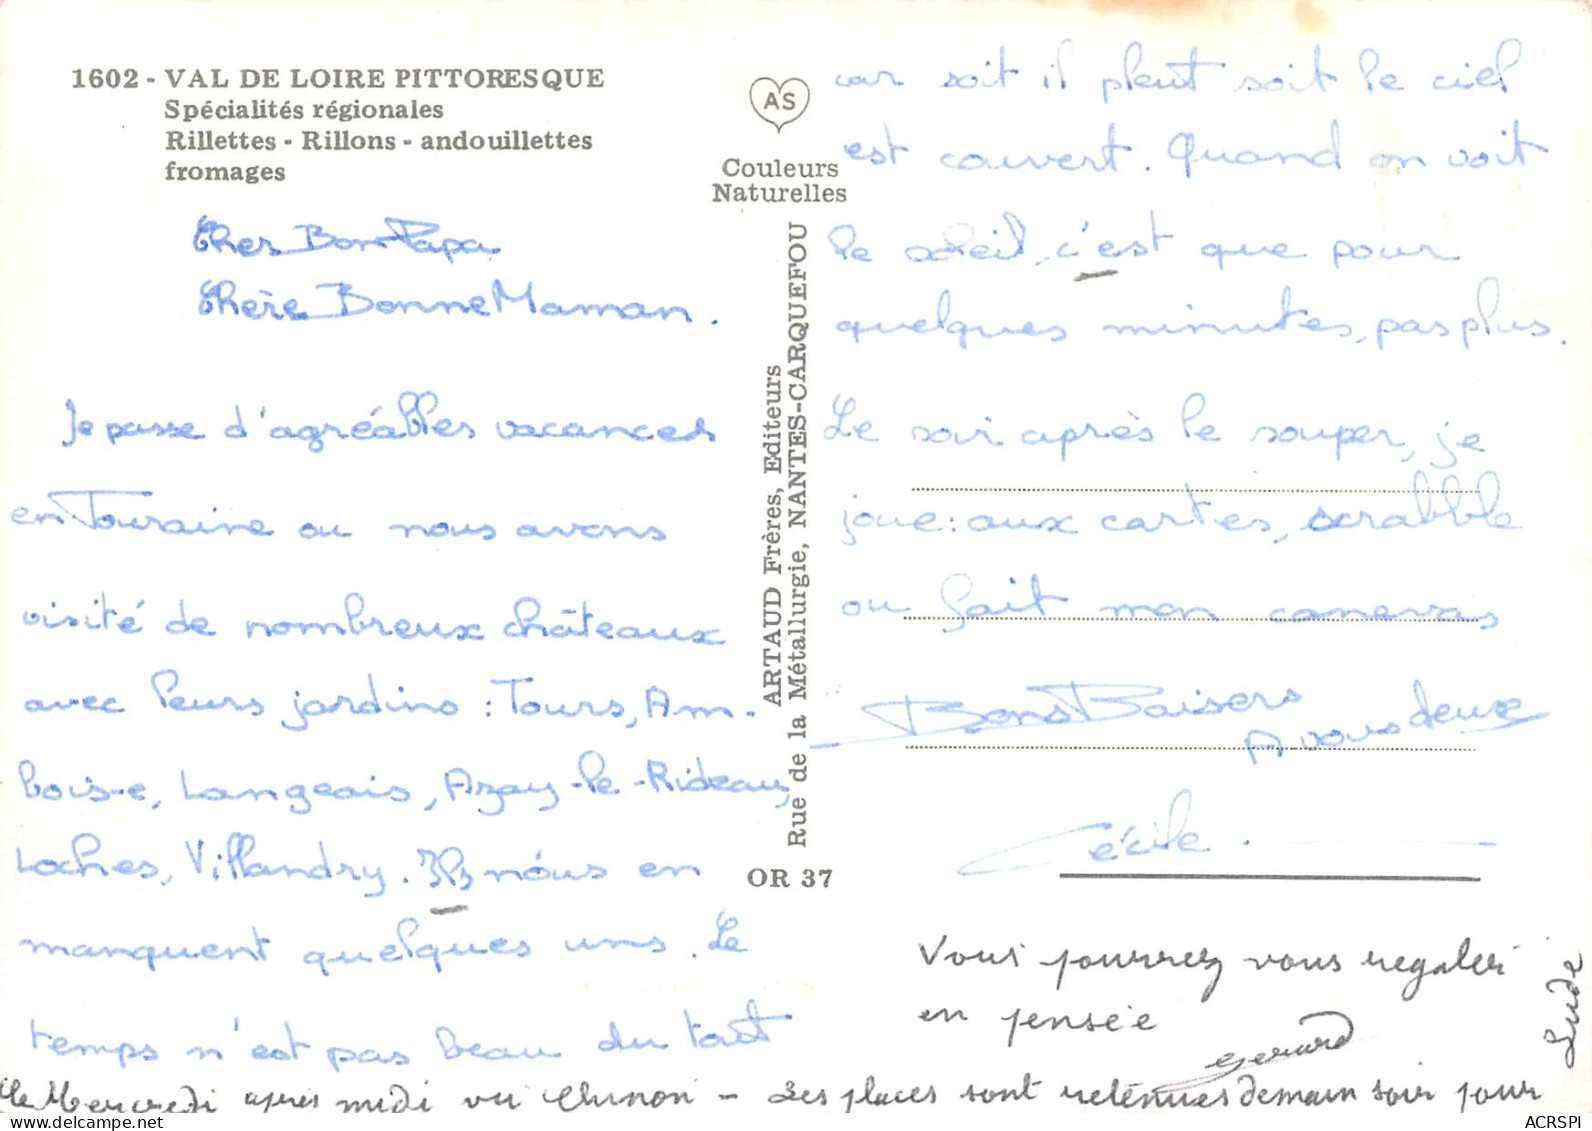 1602 - VAL DE LOIRE PITTORESQUE
Spécialités régionales
Rillettes - Rillons - andouillettes
fromages
AS
Couleurs
Naturelles
ARTAUD Frères, Editeurs
Rue de la Métallurgie, NANTES-CARQUEFOU
OR 37
Cher Bon Papa
Chère Bonne Maman.
Je passe d'agréables vacances
en Touraine ou nous avons
visité de nombreux châteaux
avec leurs jardins : Tours, Am-
boise, Langeais, Azay-le-Rideau,
Loches, Villandry. Il nous en
manquent quelques uns. Le
temps n'est pas beau du tout
car soit il pleut soit le ciel
est couvert. Quand on voit
le soleil, c'est que pour
quelques minutes, pas plus.
Le soir après le souper, je
joue : aux cartes, scrabble
ou fait mon canevas
Bons Baisers
A vous deux
Cécile.
Vous pourrez vous regaler
en pensée
Gerard
le Mercredi après midi vu Chinon - Les places sont retenues demain soir pour
Lude
ACRSPI